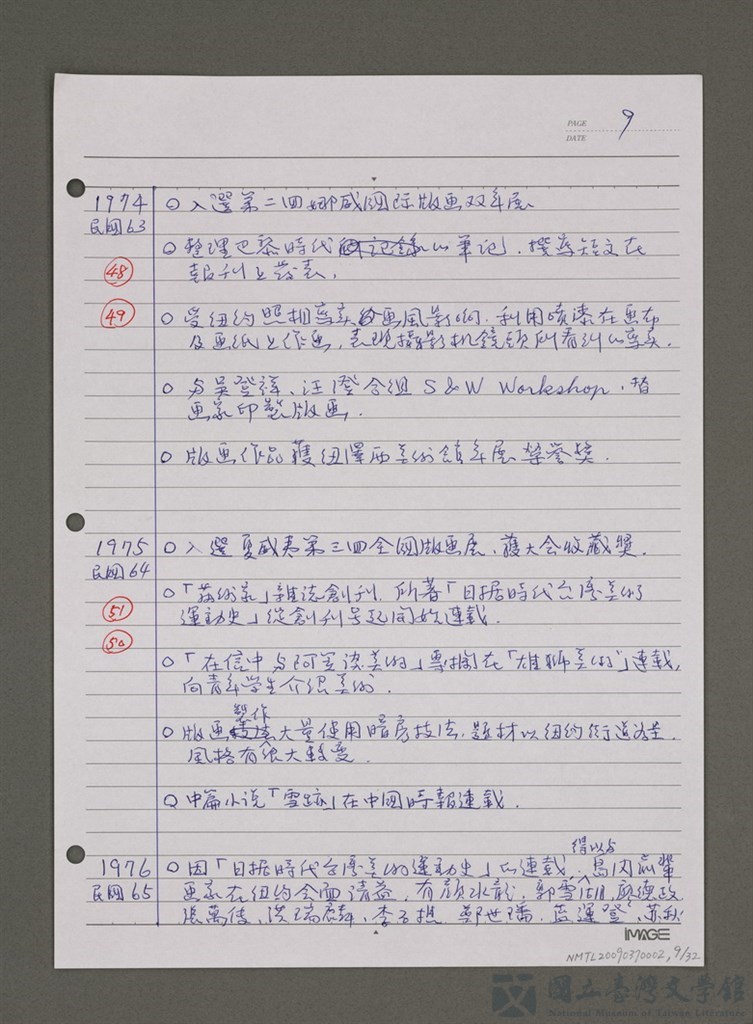 PAGE 9
DATE
1974 ○ 入選第二回挪威国际版画双年展
民國63
○ 整理巴黎時代記録的筆记，撰寫短文在
48 報刊上發表，
49 ○ 受纽约照相寫实画風影响，利用喷漆在画布
及画纸上作画，表現攝影机鏡頭所看到的寫实．
○ 与吴登祥、汪澄合组 S & W Workshop，替
画家印製版画．
○ 版画作品獲纽澤西美術館年展榮誉獎．
1975 ○ 入選夏威夷第三回全國版画展、獲大会收藏獎．
民國64
○「藝術家」雜誌創刊，所著「日据時代台湾美術
51 運動史」從創刊号起開始連載．
50
○「在信中与阿笙談美術」專欄在「雄獅美術」連載，
向青年学生介绍美術．
製作
○ 版画大量使用暗房技法，題材以纽约街道为主
風格有很大轉變．
○ 中篇小説「雪跡」在中國時報連載．
得以与
1976 ○ 因「日据時代台湾美術運動史」的連載，島内前輩
民國65 画家在纽约会面请益，有顏水龍，郭雪湖，顏德政
張萬傳、洪瑞麟、李石樵、鄭世璠、藍運登、苏秋
iMAGE
NMTL20090370002, 9/32
國立臺灣文學館
National Museum of Taiwan Literature